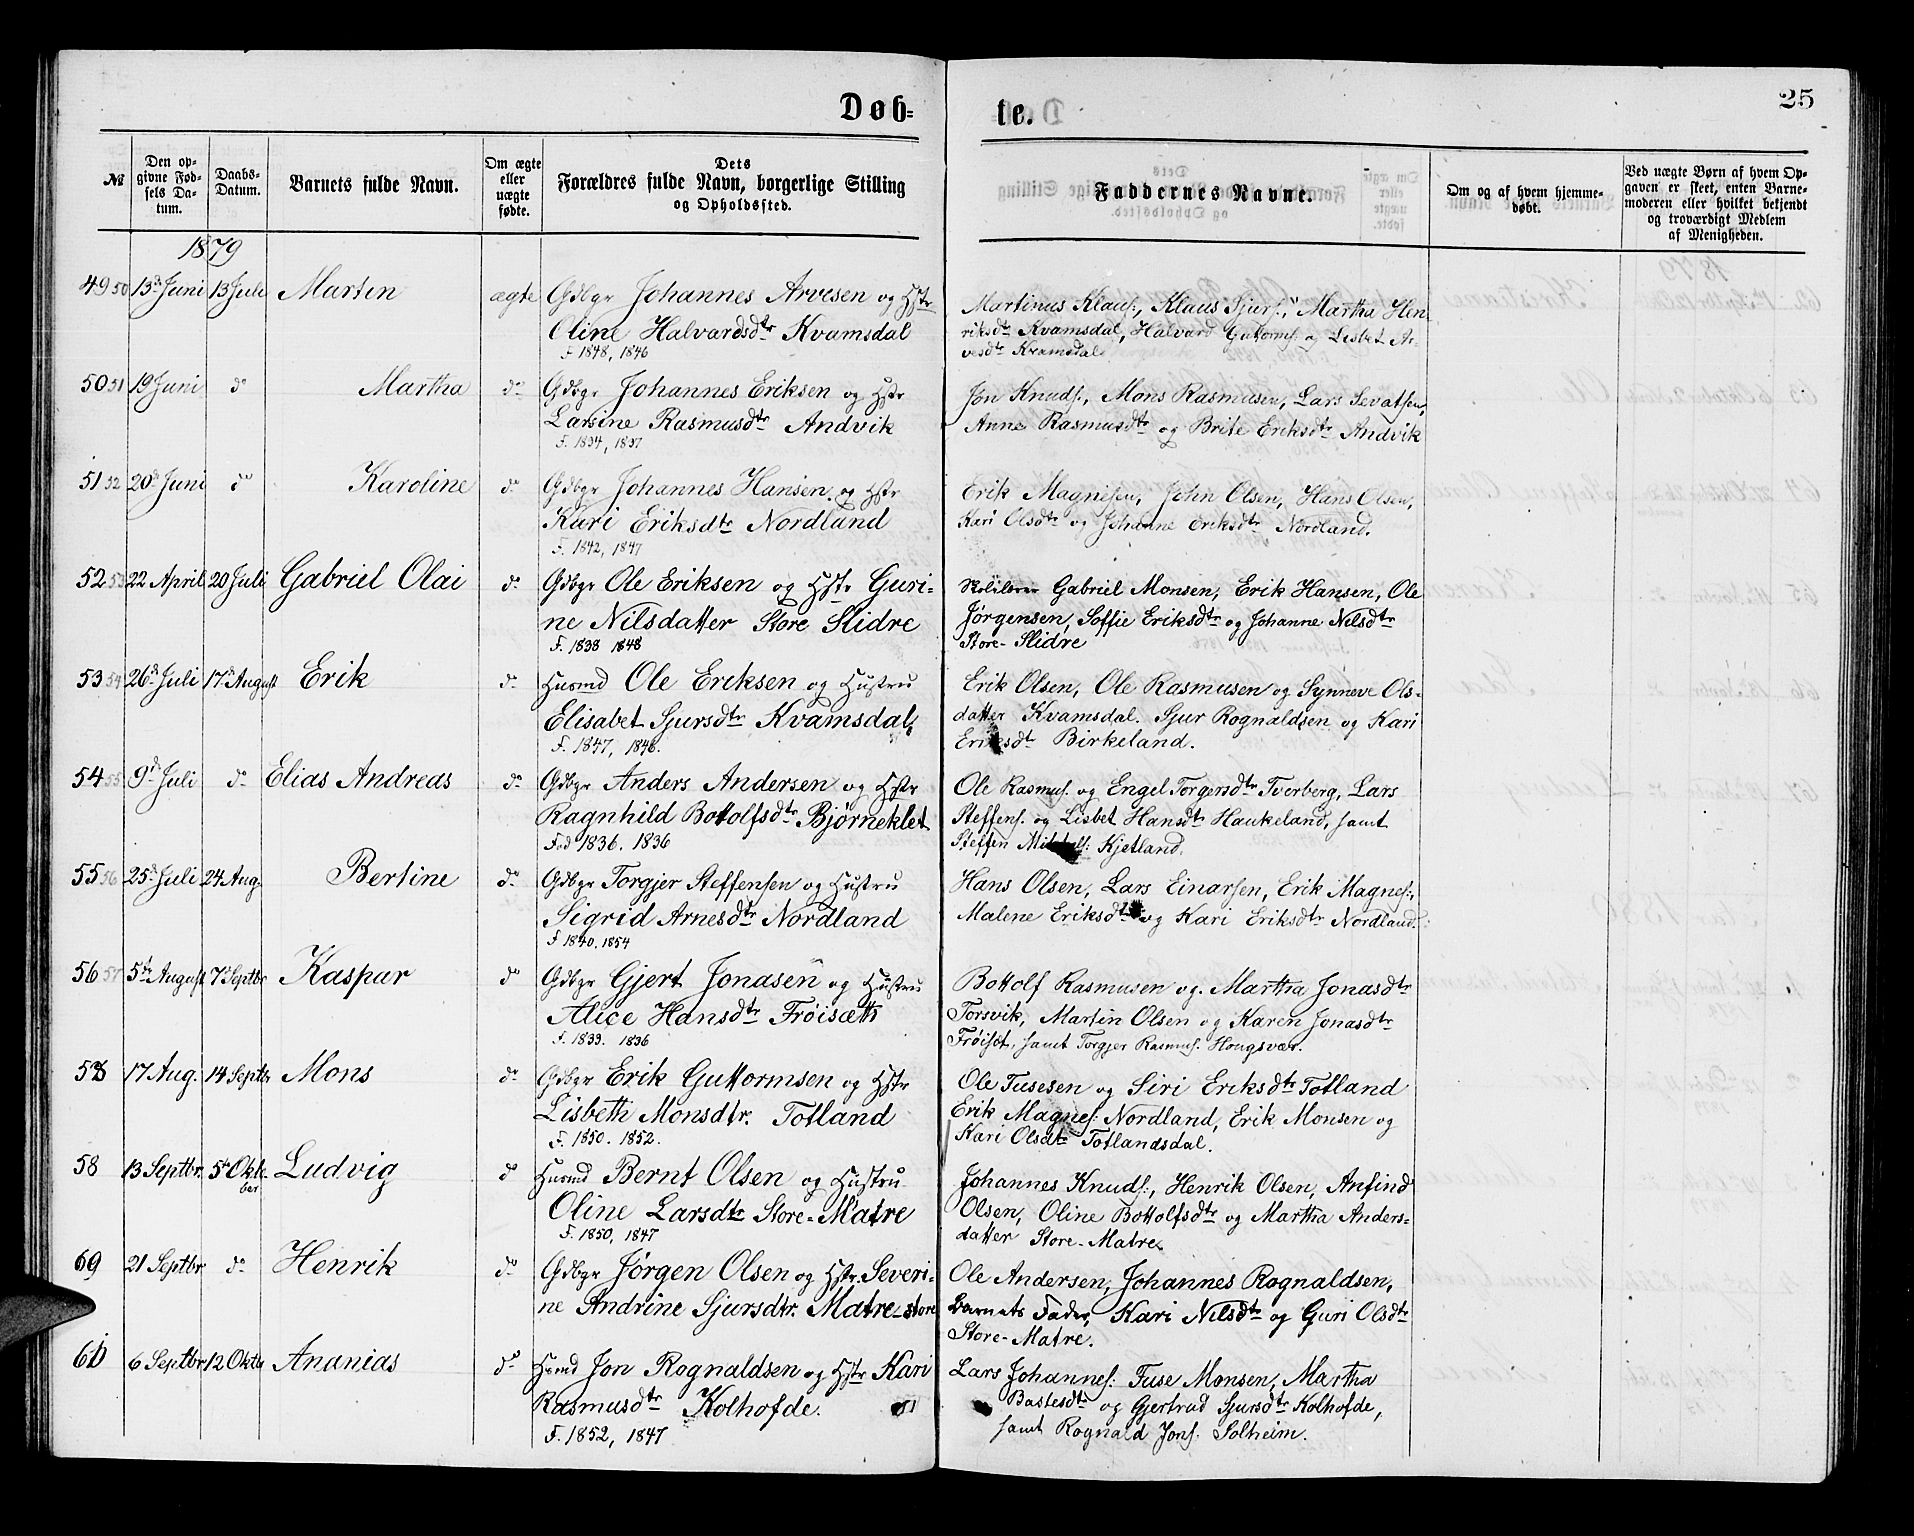 Døb=
te.
25
№
Den op-
givne Fød-
sels Da-
tum.
Daabs-
Datum.
Barnets fulde Navn.
Om ægte
eller
uægte
fødte.
Dets
Forældres fulde Navn, borgerlige Stilling
og Opholdssted.
Faddernes Navne.
Om og af hvem hjemme-
døbt.
Ved uægte Børn af hvem Op-
gaven er skeet, enten Barne-
moderen eller hvilket bekjendt
og troværdigt Medlem
af Menigheden.
1879
49 50 13de Juni 13 Juli Martin ægte Gdbgr Johannes Arvesen og Hstr
Oline Halvardsdtr Kvamsdal
F. 1848, 1846
Martinus Klaus:, Klaus Sjurs:, Martha Hen
riksdtr Kvamsdal, Halvard Guttorms: og Lisbet Ar-
vesdtr Kvamsdal
50 51 19 Juni do Martha do Gdbgr Johannes Eriksen og Hstr
Larsine Rasmusdtr Andvik
F. 1834, 1837
Jon Knuds:, Mons Rasmusen, Lars Sevatsen,
Anne Rasmusdtr og Brite Eriksdtr Andvik
51 52 20de Juni do Karoline do Gdbgr Johannes Hansen og Hstr
Kari Eriksdtr Nordland
F. 1842, 1847
Erik Magnesen, John Olsen, Hans Olsen,
Kari Olsdtr og Johanne Eriksdtr Nordland.
52 53 22 April 20 Juli Gabriel Olai do Gdbgr Ole Eriksen og Hstr Guri-
ne Nilsdatter Store Slidre
F. 1838 1848
Skolelærer Gabriel Monsen, Erik Hansen, Ole
Jørgensen, Soffie Eriksdtr og Johanne Nilsdtr
Store-Slidre
53 54 26de Juli 17de August Erik do Husmd Ole Eriksen og Hustru
Elisabet Sjursdtr Kvamsdal
F. 1847, 1846.
Erik Olsen, Ole Rasmusen og Synneve Ols-
datter Kvamsdal. Sjur Rognaldsen og Kari
Eriksdtr Birkeland.
54 55 9de Juli do Elias Andreas do Gdbgr Anders Andersen og Hstr
Ragnhild Bottolfsdtr Bjørneklet
Fød 1836. 1836
Ole Rasmus: og Engel Torgersdtr Tverberg, Lars
Steffens: og Lisbet Hansdtr Haukeland, samt
Steffen Mikkels: Kjetland.
55 56 25de Juli 24 Aug. Bertine do Gdbgr Torgjer Steffensen og Hustru
Sigrid Arnesdtr Nordland
F. 1840. 1854
Hans Olsen, Lars Einarsen, Erik Magnes:,
Malene Eriksdtr og Kari Eriksdtr Nordland.
56 57 5te August 7de Septbr Kaspar do Gdbgr Gjert Jonasen og Hustru
Alice Hansdtr Frøisæth
F. 1833. 1836
Bottolf Rasmusen og Martha Jonasdtr
Torsvik, Martin Olsen og Karen Jonasdtr
Frøiset, samt Torgjer Rasmus: Hougsvær.
58 17 Aug. 14 Septbr Mons do Gdbgr Erik Guttormsen og Hstr
Lisbeth Monsdtr. Totland
F. 1850. 1852.
Ole Tusesen og Siri Eriksdtr Totland
Erik Magnes: Nordland, Erik Monsen og
Kari Olsdtr Totlandsdal.
58 13 Septbr. 5te Okto-
ber Ludvig do Husmd Bernt Olsen og Hustru
Oline Larsdtr Store-Matre
F. 1850, 1847
Johannes Knuds:, Henrik Olsen, Anfind
Olsen, Oline Bottolfsdtr og Martha Anders-
datter Store-Matre.
69 21 Septbr. do Henrik do Gdbgr Jørgen Olsen og Hstr. Severi-
ne Andrine Sjursdtr. Matre-store
Ole Andersen, Johannes Rognaldsen,
Barnets Fader, Kari Nilsdtr og Guri Olsdtr
Store-Matre.
61 6 Septbr. 12 Oktbr Ananias do Hsmd Jon Rognaldsen og Hstr Kari
Rasmusdtr Kolhofde.
F. 1852, 1847
Lars Johannes: Tuse Monsen, Martha
Bastesdtr og Gjertrud Sjursdtr Kolhofde,
samt Rognald Jons: Solheim.